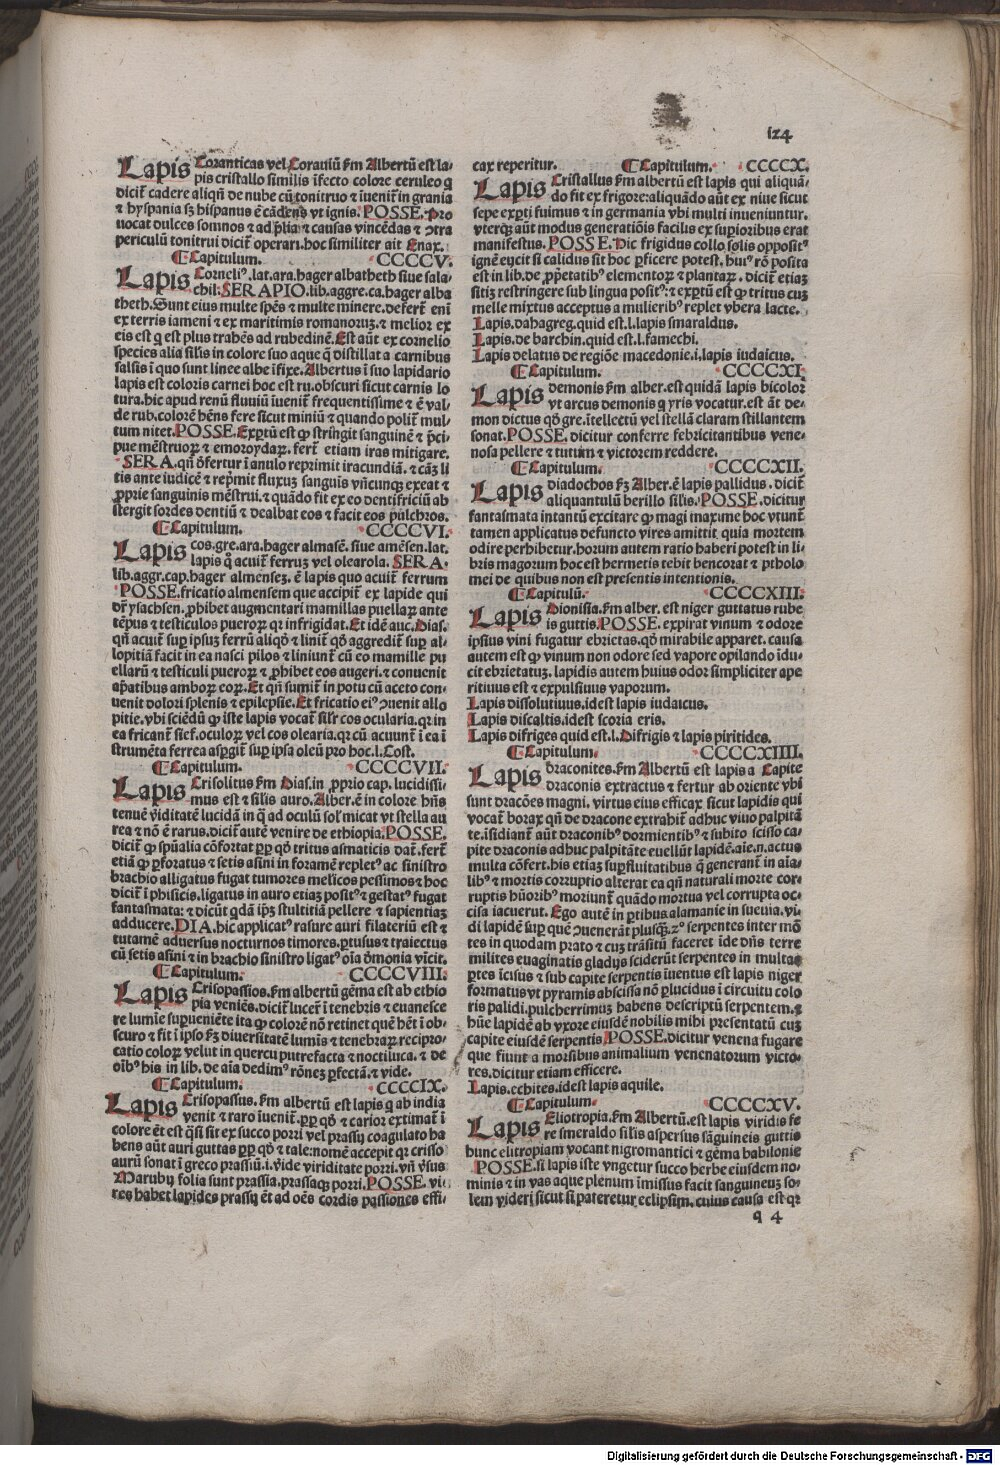 124
Lapis Coranticas vel Corauiũ ẜm Albertũ est la-
pis cristallo similis ĩfecto colore ceruleo q
dicit᷑ cadere aliqñ de nube cũ tonitruo ⁊ iuenit᷑ in grania
⁊ hyspania sʒ hispanus ẽ cãdens vt ignis. POSSE. Pro
uocat dulces somnos ⁊ ad p̃lia ⁊ causas vincẽdas ⁊ ↄtra
periculũ tonitrui dicit᷑ operari. hoc similiter ait Enax.
¶ Capitulum. CCCCV.
Lapis Corneliꝰ. lat. ara. hager albatheth siue sala-
chil: SERAPIO. lib. aggre. ca. hager alba
theth. Sunt eius multe spẽs ⁊ multe minere. defert᷑ enĩ
ex terris iameni ⁊ ex maritimis romanoruʒ. ⁊ melior ex
eis est q est plus trahẽs ad rubedinẽ. Est aũt ex cornelio
species alia silis in colore suo aque q̃ distillat a carnibus
salsis ĩ quo sunt linee albe ĩfixe. Albertus ĩ suo lapidario
lapis est coloris carnei hoc est ru. obscuri sicut carnis lo
tura. hic apud renũ fluuiũ iuenit᷑ frequentissime ⁊ ẽ val-
de rub. colorẽ hẽns fere sicut miniũ ⁊ quando polit᷑ mul-
tum nitet. POSSE. Exꝑtũ est ꝙ stringit sanguinẽ ⁊ p̃ci-
pue mẽstruoꝝ ⁊ emoroydaꝝ. fert᷑ etiam iras mitigare.
SERA. qñ ↄ̃fertur ĩ anulo reprimit iracundiã. ⁊ cãʒ li
tis ante iudicẽ ⁊ rep̃mit fluxuʒ sanguis vñcunqʒ exeat ⁊
ꝓprie sanguinis mẽstrui. ⁊ quãdo fit ex eo dentifriciũ ab
stergit sordes dentiũ ⁊ dealbat eos ⁊ facit eos pulchros.
¶ Capitulum. CCCCVI.
Lapis cos. gre. ara. hager almasẽ. siue amẽsen. lat.
lapis q̃ acuit᷑ ferruʒ vel olearola. SERA.
lib. aggr. cap. hager almenseʒ. ẽ lapis quo acuit᷑ ferrum
POSSE. fricatio almensem que accipit᷑ ex lapide qui
dr̃ ysachsen. ꝓhibet augmentari mamillas puellaꝝ ante
tẽpus ⁊ testiculos pueroꝝ qt infrigidat. Et idẽ auc. Dias.
qñ acuit᷑ suꝑ ipsuʒ ferrũ aliqð ⁊ linit᷑ qð aggredit᷑ suꝑ al-
lopitiã facit in ea nasci pilos ⁊ liniunt᷑ cũ eo mamille pu
ellarũ ⁊ testiculi pueroꝝ ⁊ ꝓhibet eos augeri. ⁊ conuenit
ap̃atibus amboꝝ eoꝝ. Et qñ sumit᷑ in potu cũ aceto con-
uenit dolori splenis ⁊ epilepsie. Et fricatio eiꝰ ↄuenit allo
pitie. vbi sciẽdũ ꝙ iste lapis vocat᷑ silr̃ cos ocularia. qꝛ in
ea fricant᷑ sief. oculoꝝ vel cos olearia. qꝛ cũ acuunt᷑ ĩ ea ĩ
strumẽta ferrea asꝑgit᷑ suꝑ ipsa oleũ pro hoc. l. Cost.
¶ Capitulum. CCCCVII.
Lapis Crisolitus ẜm Dias. in ꝓprio cap. lucidissi-
mus est ⁊ silis auro. Alber. ẽ in colore hñs
tenuẽ ṽiditatẽ lucidã in q̃ ad oculũ sol᷑ micat vt stella au
rea ⁊ nõ ẽ rarus. dicit᷑ autẽ venire de ethiopia. POSSE.
dicit᷑ ꝙ spũalia cõfortat ꝓp qð tritus asmaticis dat᷑. fert᷑
etiã ꝙ ꝑforatus ⁊ setis asini in foramẽ repletꝰ ac sinistro
brachio alligatus fugat tumores melicos pessimos ⁊ hoc
dicit᷑ ĩ phisicis. ligatus in auro etiaʒ positꝰ ⁊ gestatꝰ fugat
fantasmata: ⁊ dicũt qdã ip̃ʒ stultitiã pellere ⁊ sapientiaʒ
adducere. DIA. hic applicatꝰ rasure auri filateriũ est ⁊
tutamẽ aduersus nocturnos timores. ꝑtusus ⁊ traiectus
cũ setis asini ⁊ in brachio sinistro ligatꝰ oĩa ðmonia vĩcit.
¶ Capitulum. CCCCVIII.
Lapis Crisopassios. ẜm albertũ gẽma est ab ethio
pia veniẽs. dicit᷑ lucer᷑ ĩ tenebris ⁊ euanesce
re lumĩe suꝑueniẽte ita ꝙ colorẽ nõ retinet quẽ hẽt ĩ ob-
scuro ⁊ fit ĩ ipso ꝑʒ diuersitatẽ lumĩs ⁊ tenebraꝝ recipro-
catio coloꝝ velut in quercu putrefacta ⁊ noctiluca. ⁊ de
oĩbꝰ his in lib. de aĩa dedimꝰ rõneʒ ꝑfectã. ⁊ vide.
¶ Capitulum. CCCCIX.
Lapis Crisopassus. ẜm albertũ est lapis q̃ ab india
venit ⁊ raro ĩuenit᷑. ꝓp qð ⁊ carior extimat᷑ ĩ
colore ẽt est q̃si sit ex succo porri vel prassij coagulato ha
bens aũt auri guttas ꝓp qð ⁊ tale nomẽ accepit qꝛ crisso
aurũ sonat ĩ greco prassiũ. i. viride viriditate porri. vñ ṽsus
Marubij folia sunt prassia. prassaqʒ porri. POSSE. vi-
res habet lapides prassij ẽt ad oẽs cordis passiones effi-
cax reperitur. ¶ Capitulum. CCCCX.
Lapis Cristallus ẜm albertũ est lapis qui aliquã-
do fit ex frigore: aliquãdo aũt ex niue sicut
sepe exꝑti fuimus ⁊ in germania vbi multi inueniuntur.
vterqʒ aũt modus generatiõis facilis ex suꝑioribus erat
manifestus. POSSE. Hic frigidus collo solis oppositꝰ
ignẽ eycit si calidus sit hoc ꝑficere potest. huiꝰ rõ posita
est in lib. de ꝓp̃etatibꝰ elementoꝝ ⁊ plantaꝝ. dicit᷑ etiaʒ
sitiʒ restringere sub lingua positꝰ: ⁊ exꝑtũ est ꝙ tritus cuʒ
melle mixtus acceptus a mulieribꝰ replet vbera lacte.
Lapis. dahagreg. quid est. l. lapis smaraldus.
Lapis. de barchin. quid est. l. famechi.
Lapis delatus de regiõe macedonie. i. lapis iudaicus.
¶ Capitulum. CCCCXI
Lapis demonis ẜm alber. est quidã lapis bicolor
vt arcus demonis q̃ yris vocatur. est ãt de-
mon dictus qð gre. ĩtellectũ vel stellã claram stillantem
sonat. POSSE. dicitur conferre febricitantibus vene-
nosa pellere ⁊ tutum ⁊ victorem reddere.
¶ Capitulum. CCCCXII.
Lapis diadochos ꝑʒ Alber. ẽ lapis pallidus. dicit᷑
aliquantulũ berillo silis. POSSE. dicitur
fantasmata intantũ excitare ꝙ magi maxime hoc vtunt᷑
tamen applicatus defuncto vires amittit quia mortem
odire perhibetur. horum autem ratio haberi potest in li-
bris magorum hoc est hermetis tebit bencorat ⁊ ptholo
mei de quibus non est presentis intentionis.
¶ Capitulũ. CCCCXIII.
Lapis Dionisia. ẜm alber. est niger guttatus rube
is guttis. POSSE. expirat vinum ⁊ odore
ipsius vini fugatur ebrietas. qð mirabile apparet. causa
autem est ꝙ vinum non odore sed vapore opilando ĩdu-
cit ebrietatuʒ. lapidis autem huius odor simpliciter ape
ritiuus est ⁊ expulsiuus vaporum.
Lapis dissolutiuus. idest lapis iudaicus.
Lapis discaltis. idest scoria eris.
Lapis difriges quid est. l. Difrigis ⁊ lapis piritides.
¶ Capitulum. CCCCXIIII.
Lapis draconites. ẜm Albertũ est lapis a Capite
draconis extractus ⁊ fertur ab oriente vbi
sunt dracões magni. virtus eius efficax sicut lapidis qui
vocat᷑ borax qñ de dracone extrahit᷑ adhuc viuo palpitã
te. ĩsidiant᷑ aũt draconibꝰ dormientibꝰ ⁊ subito scisso ca-
pite draconis adhuc palpitãte euellũt lapidẽ. aĩe. n. actus
multa cõfert. his etiaʒ suꝑfluitatibus q̃ generant᷑ in aĩa-
libꝰ ⁊ mortis corruptio alterat ea qñ naturali morte cor-
ruptis hũoribꝰ moriunt᷑ quãdo mortua vel corrupta oc-
cisa iacuerut. Ego autẽ in ꝑtibus alamanie in sueuia. vi-
di lapidẽ suꝑ quẽ ↄuenerãt plusqʒ. 2ᵒ serpentes inter mõ
tes in quodam prato ⁊ cuʒ trãsitũ faceret ide dñs terre
milites euaginatis gladijs sciderũt serpentes in multas
ꝑtes ĩcisus ⁊ sub capite serpentis ĩuentus est lapis niger
formatus vt pyramis abscissa nõ ꝑlucidus ĩ circuitu colo
ris palidi. pulcherrimuʒ habens descriptũ serpentem. ⁊
hũc lapidẽ ab vxore eiusdẽ nobilis mihi presentatũ cuʒ
capite eiusdẽ serpentis. POSSE. dicitur venena fugare
que fiunt a morsibus animalium venenatorum victo-
res. dicitur etiam efficere.
Lapis. echites. idest lapis aquile.
¶ Capitulum. CCCCXV.
Lapis Eliotropia. ẜm Albertũ. est lapis viridis fe
re smeraldo silis aspersus sãguineis guttis
hunc elitropiam vocant nigromantici ⁊ gẽma babilonie
POSSE. si lapis iste vngetur succo herbe eiusdem no-
minis ⁊ in vas aque plenum ĩmissus facit sanguineuʒ so-
lem videri sicut si pateretur eclipsim. cuius causa est qꝛ
q 4
Digitalisierung gefördert durch die Deutsche Forschungsgemeinschaft - DFG